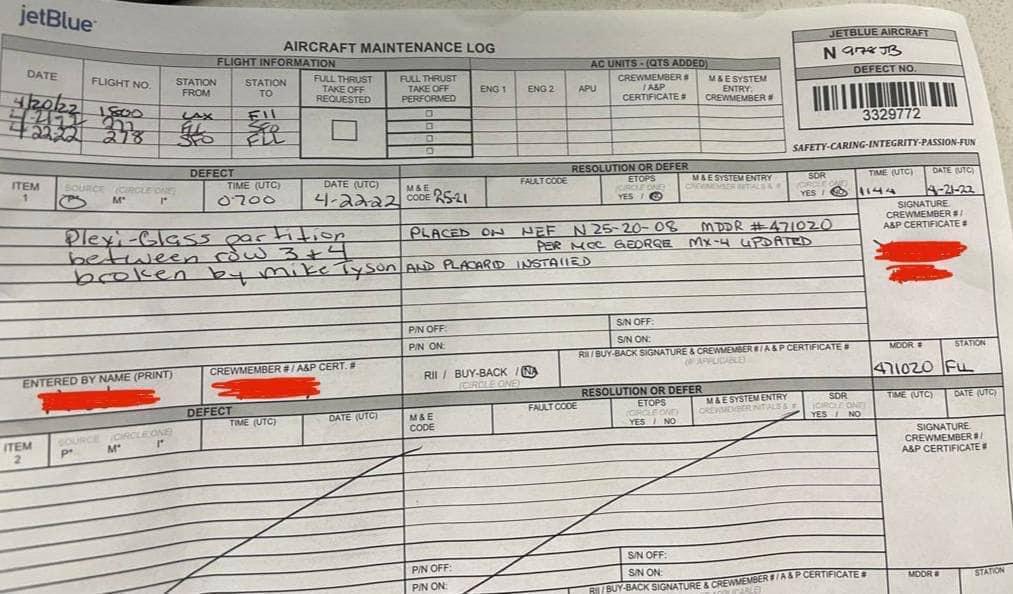 jetBlue
AIRCRAFT MAINTENANCE LOG
JETBLUE AIRCRAFT
N 978JB
DEFECT NO.
3329772
SAFETY-CARING-INTEGRITY-PASSION-FUN
FLIGHT INFORMATION
AC UNITS - (QTS ADDED)
DATE FLIGHT NO. STATION FROM STATION TO FULL THRUST TAKE OFF REQUESTED FULL THRUST TAKE OFF PERFORMED ENG 1 ENG 2 APU CREWMEMBER # / A&P CERTIFICATE # M & E SYSTEM ENTRY: CREWMEMBER #
4/20/22 1500 LAX Fll
277 FLL SFO
4-22-22 278 SFO FLL
DEFECT RESOLUTION OR DEFER
ITEM 1 SOURCE (CIRCLE ONE) P* M* I* TIME (UTC) 0700 DATE (UTC) 4-22-22 M & E CODE 2521 FAULT CODE ETOPS (CIRCLE ONE) YES / NO M & E SYSTEM ENTRY CREWMEMBER INITIALS & # SDR (CIRCLE ONE) YES / NO TIME (UTC) 1144 DATE (UTC) 4-21-22
Plexi-Glass partition PLACED ON NEF N25-20-08 MDDR #471020
between row 3+4 PER MOC GEORGE MX-4 UPDATED
broken by mike Tyson AND PLACARD INSTALLED
SIGNATURE CREWMEMBER # / A&P CERTIFICATE #
P/N OFF: S/N OFF:
P/N ON: S/N ON:
ENTERED BY NAME (PRINT) CREWMEMBER # / A&P CERT. # RII / BUY-BACK / NA (CIRCLE ONE) RII / BUY-BACK SIGNATURE & CREWMEMBER # / A & P CERTIFICATE # (IF APPLICABLE) MDDR # 471020 STATION FLL
DEFECT RESOLUTION OR DEFER
ITEM 2 SOURCE (CIRCLE ONE) P* M* I* TIME (UTC) DATE (UTC) M & E CODE FAULT CODE ETOPS (CIRCLE ONE) YES / NO M & E SYSTEM ENTRY CREWMEMBER INITIALS & # SDR (CIRCLE ONE) YES / NO TIME (UTC) DATE (UTC)
SIGNATURE CREWMEMBER # / A&P CERTIFICATE #
P/N OFF: S/N OFF:
P/N ON: S/N ON:
RII / BUY-BACK SIGNATURE & CREWMEMBER # / A & P CERTIFICATE # MDDR # STATION